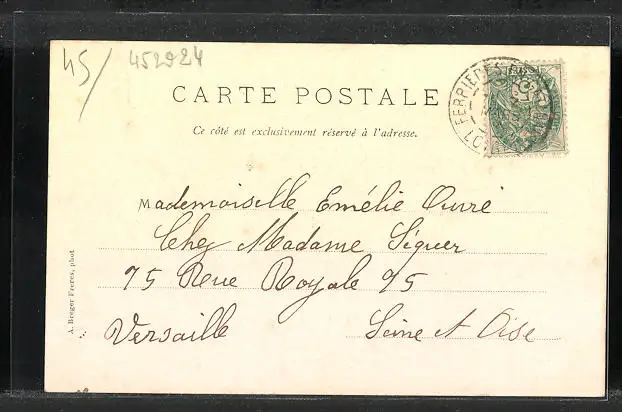 45/ 452924
CARTE POSTALE
Ce côté est exclusivement réservé à l'adresse.
FERRIERES
Mademoiselle Emélie Ouvré
Chez Madame Siguer
75 Rue Royale 75
Versaille Seine et Oise
A. Berger Freres, phot